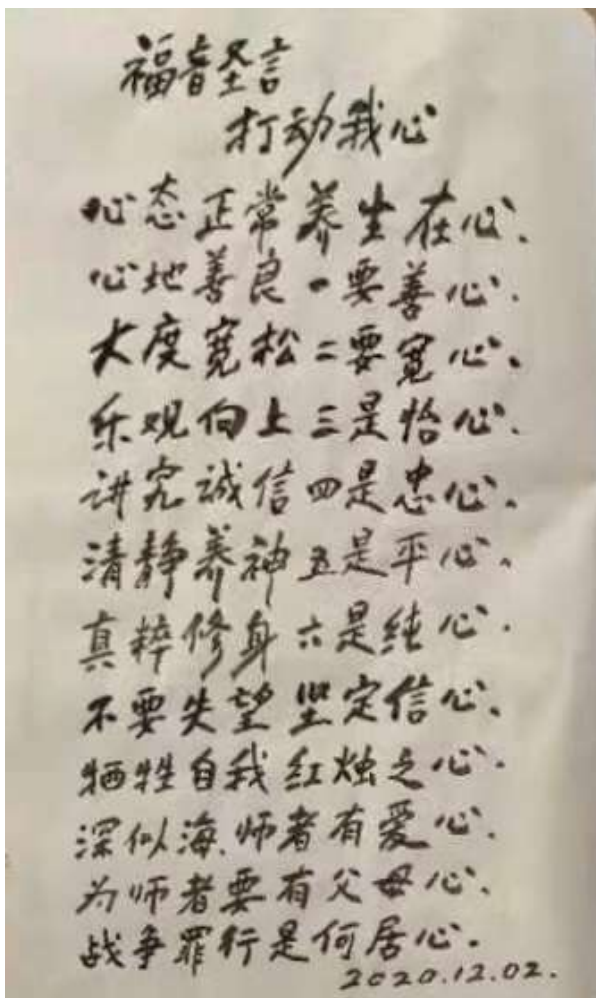 福音圣言
打动我心
心态正常养生在心.
心地善良一要善心.
大度宽松二要宽心.
乐观向上三是怡心.
讲究诚信四是忠心.
清静养神五是平心.
真粹修身六是纯心.
不要失望坚定信心.
牺牲自我红烛之心.
深似海.师者有爱心.
为师者要有父母心.
战争罪行是何居心.
2020.12.02.